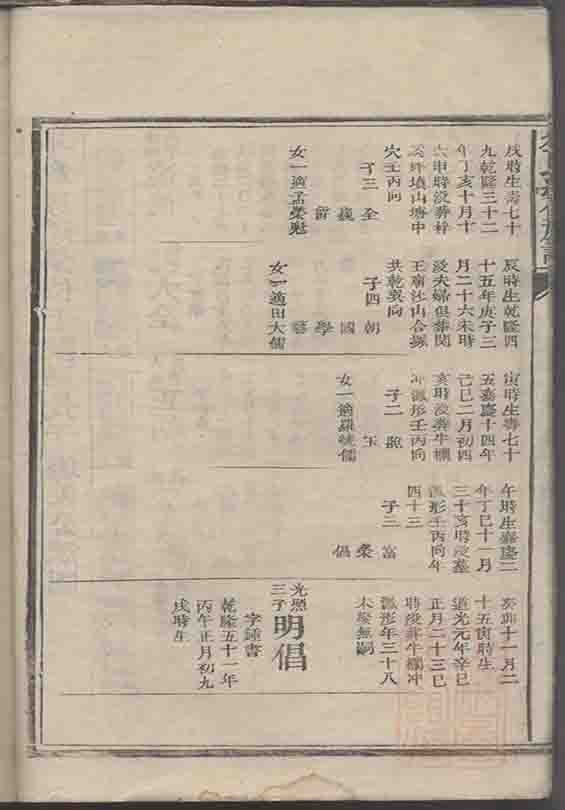 戌時生壽七十
九乾隆三十二
年丁亥十月十
申時沒葬梓
坪墳山塘中
穴壬丙向
子三 全
女一適孟榮
辰時生乾隆四
十五年庚子三
月二十六未時
沒夫婦俱葬関
王廟江山合塚
共乾巽向
子四 朝 國 學 藝
女一適田大儒
寅時生壽七十
五嘉慶十四年
己巳二月初四
亥時沒葬牛欄
冲瓢形壬丙向
子二 玉
女一適羅 儒
午時生嘉慶二
年丁巳十一月
三十亥時沒墓
瓢形壬丙向年
四十三
子三 富 榮 倡
癸卯十一月二
十五寅時生
道光元年辛巳
正月二十三巳
時沒葬牛欄冲
瓢形年三十八
未娶無嗣
光照
三子
明倡
字鍾書
乾隆五十一年
丙午正月初九
戌時生